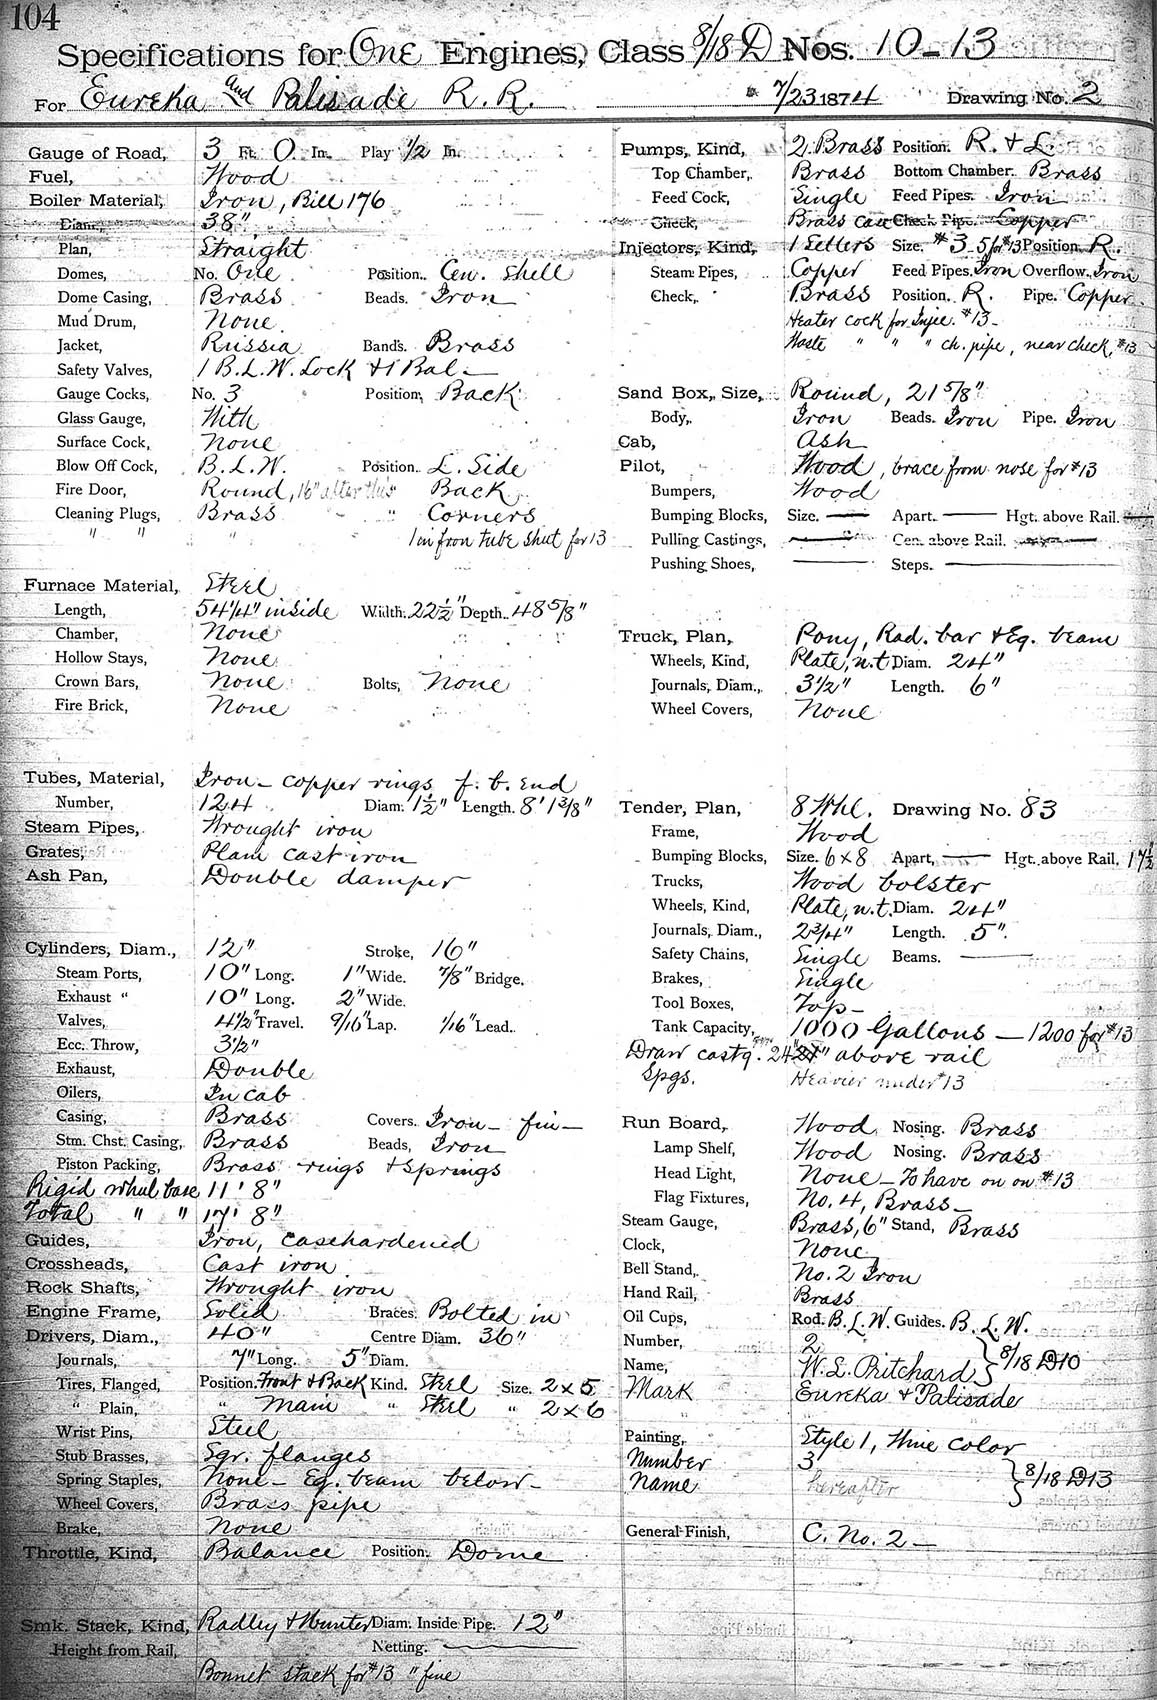 104
Specifications for One Engines, Class 8/18 D Nos. 10-13
For Eureka and Palisade R. R. 7/23 1874 Drawing No. 2
Gauge of Road, 3 Ft. 0 In. Play 1/2 In.
Fuel, Wood
Boiler Material, Iron, Bill 176
Diam., 38"
Plan, Straight
Domes, No. One Position. Cen. Shell
Dome Casing, Brass Beads. Iron
Mud Drum, None.
Jacket, Russia Bands. Brass
Safety Valves, 1 B.L.W. Lock & 1 Bal-
Gauge Cocks, No. 3 Position, Back
Glass Gauge, With
Surface Cock, None
Blow Off Cock, B.L.W. Position. L. Side
Fire Door, Round, 16" after this Back
Cleaning Plugs, Brass " Corners
" " " 1 in fron tube sheet for 13
Furnace Material, Steel
Length, 54 1/4" inside Width. 22 1/2" Depth. 48 5/8"
Chamber, None
Hollow Stays, None
Crown Bars, None Bolts, None
Fire Brick, None
Tubes, Material, Iron - copper rings f. b. end
Number, 124 Diam. 1 1/2" Length. 8' 1 3/8"
Steam Pipes, Wrought iron
Grates, Plain cast iron
Ash Pan, Double damper
Cylinders, Diam., 12" Stroke, 16"
Steam Ports, 10" Long. 1" Wide. 7/8" Bridge.
Exhaust " 10" Long. 2" Wide.
Valves, 4 1/2" Travel. 9/16" Lap. 1/16" Lead.
Ecc. Throw, 3 1/2"
Exhaust, Double
Oilers, In cab
Casing, Brass Covers. Iron - fin -
Stm. Chst. Casing, Brass Beads, Iron
Piston Packing, Brass rings & springs
Rigid wheel base 11' 8"
Total " " 17' 8"
Guides, Iron, casehardened
Crossheads, Cast iron
Rock Shafts, Wrought iron
Engine Frame, Solid Braces. Bolted in
Drivers, Diam., 40" Centre Diam. 36"
Journals, 7" Long. 5" Diam.
Tires, Flanged, Position. Front & Back Kind. Steel Size. 2 x 5
" Plain, " Main " Steel " 2 x 6
Wrist Pins, Steel
Stub Brasses, Sqr. flanges
Spring Staples, None - Eq. beam below -
Wheel Covers, Brass pipe
Brake, None
Throttle, Kind, Balance Position. Dome
Smk. Stack, Kind, Radley & Hunter Diam. Inside Pipe. 12"
Height from Rail, Netting.
Bonnet stack for #13 " fine
Pumps, Kind, 2. Brass Position. R. & L.
Top Chamber, Brass Bottom Chamber. Brass
Feed Cock, Single Feed Pipes. Iron
Check, Brass case Check Pipe. Copper
Injectors, Kind, 1 Sellers Size. #3 5 for #13 Position. R.
Steam Pipes, Copper Feed Pipes. Iron Overflow. Iron
Check, Brass Position. R. Pipe. Copper
Heater cock for Injec. #13 -
Waste " " " ch. pipe, near check, #13
Sand Box, Size, Round, 21 5/8"
Body, Iron Beads. Iron Pipe. Iron
Cab, Ash
Pilot, Wood, brace from nose for #13
Bumpers, Wood
Bumping Blocks, Size. Apart. Hgt. above Rail.
Pulling Castings, Cen. above Rail.
Pushing Shoes, Steps.
Truck, Plan, Pony, Rad. bar & Eq. beam
Wheels, Kind, Plate, n.t. Diam. 24"
Journals, Diam., 3 1/2" Length. 6"
Wheel Covers, None
Tender, Plan, 8 Whl. Drawing No. 83
Frame, Wood
Bumping Blocks, Size. 6 x 8 Apart, Hgt. above Rail. 17 1/2
Trucks, Wood bolster
Wheels, Kind, Plate, n.t. Diam. 24"
Journals, Diam., 2 3/4" Length. 5".
Safety Chains, Single Beams.
Brakes, Single
Tool Boxes, Top -
Tank Capacity, 1000 Gallons - 1200 for #13
Draw castg. 24" above rail
Spgs. Heavier under #13
Run Board, Wood Nosing. Brass
Lamp Shelf, Wood Nosing. Brass
Head Light, None - To have on on #13
Flag Fixtures, No. 4, Brass -
Steam Gauge, Brass, 6" Stand, Brass
Clock, None
Bell Stand, No. 2 Iron
Hand Rail, Brass
Oil Cups, Rod. B.L.W. Guides. B.L.W.
Number, 2
Name, W. L. Pritchard } 8/18 D10
Mark Eureka & Palisade
Painting, Style 1, Wine color
Number 3
Name hereafter } 8/18 D13
General Finish, C. No. 2 -